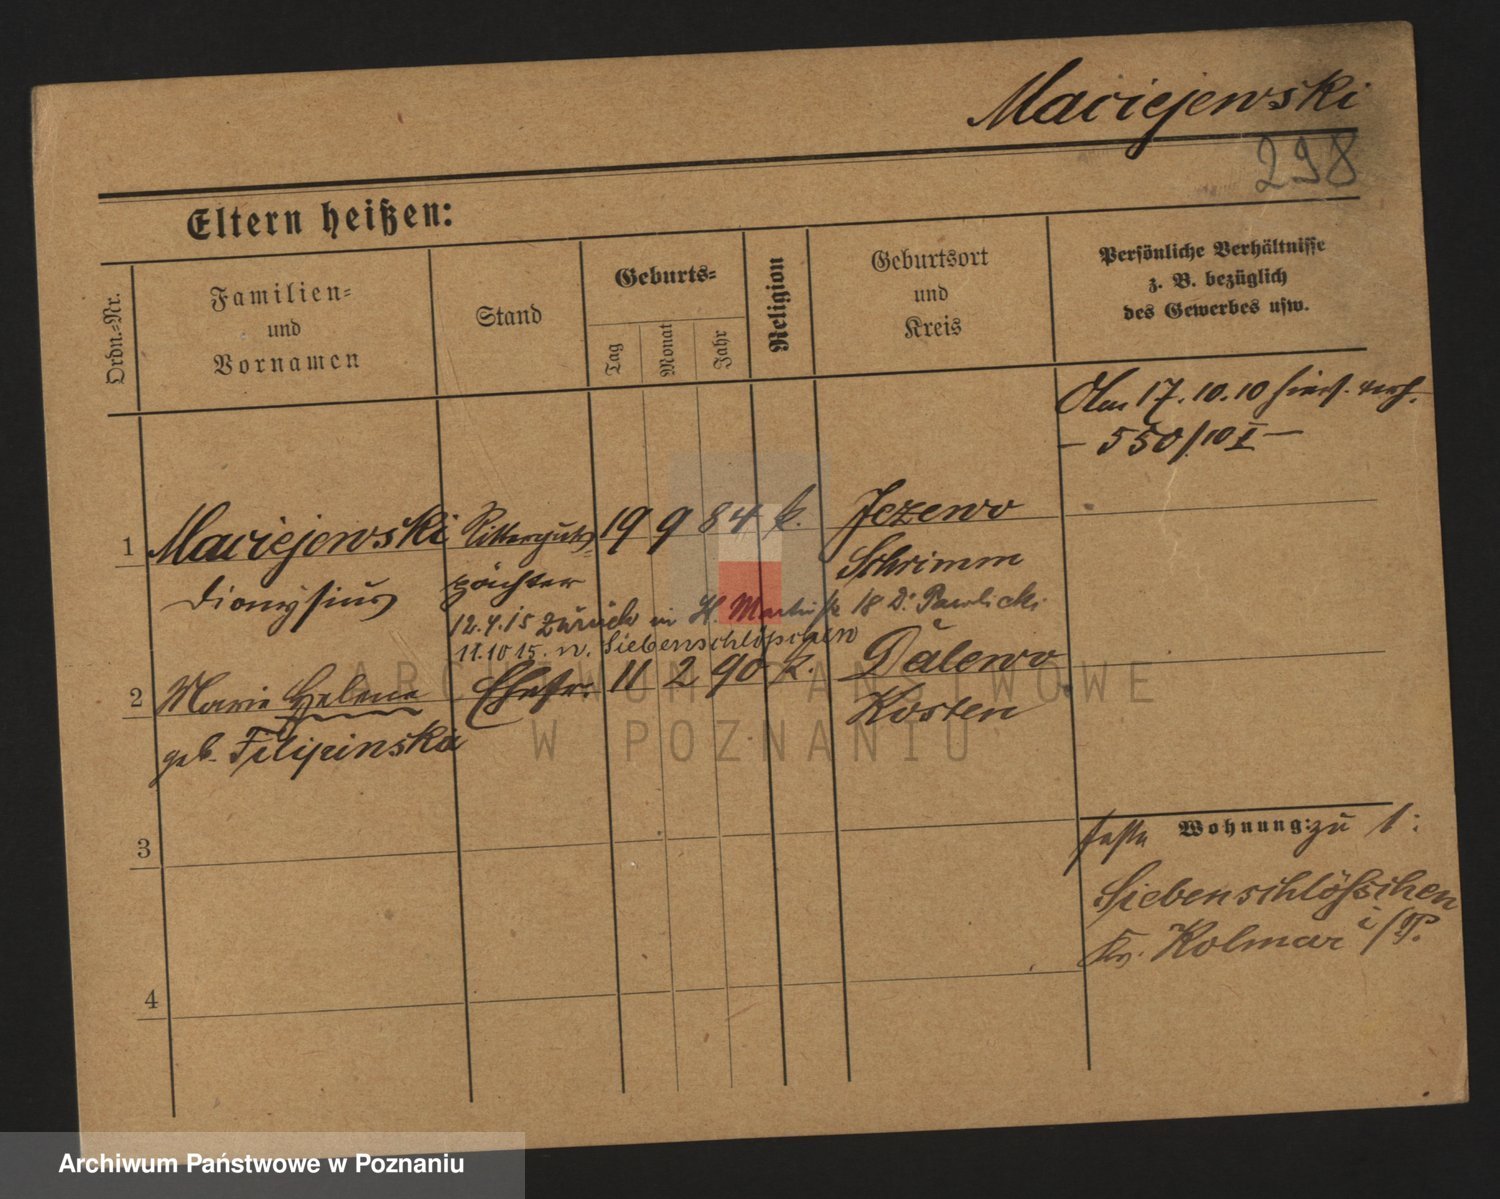 Maciejewski
298
Eltern heißen:
Ordn.-Nr.
Familien-
und
Vornamen
Stand
Geburts-
Tag
Monat
Jahr
Religion
Geburtsort
und
Kreis
Persönliche Verhältnisse
z. B. bezüglich
des Gewerbes usw.
Am 17.10.10 hiers. verh.
— 550/10 I —
1 Maciejewski Ritterguts= 19 9 84 k. Jezewo
Dionysius pächter Schrimm
12.4.15 zurück in St. Martinstr 18 b. Pawlicki
11.10 15. n. Siebenschlößchen
2 Marie Helene Ehefr. 11 2 90 k. Dalewo
geb. Filipinska Kosten
3
4
feste Wohnung: zu 1:
Siebenschlößchen
Kr. Kolmar i/P.
ARCHIWUM PAŃSTWOWE
W POZNANIU
Archiwum Państwowe w Poznaniu